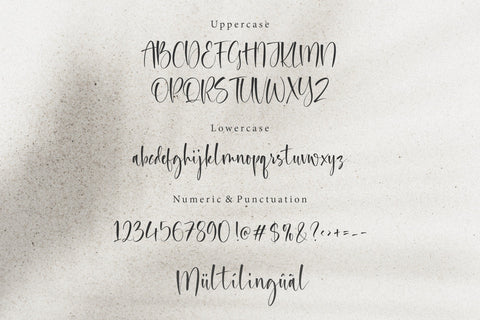 Uppercase
ABCDEFGHIJKLMN
OPQRSTUVWXYZ
Lowercase
abcdefghijklmnopqrstuvwxyz
Numeric & Punctuation
1234567890!@#$%&?<>+=--
Mültílingûãl